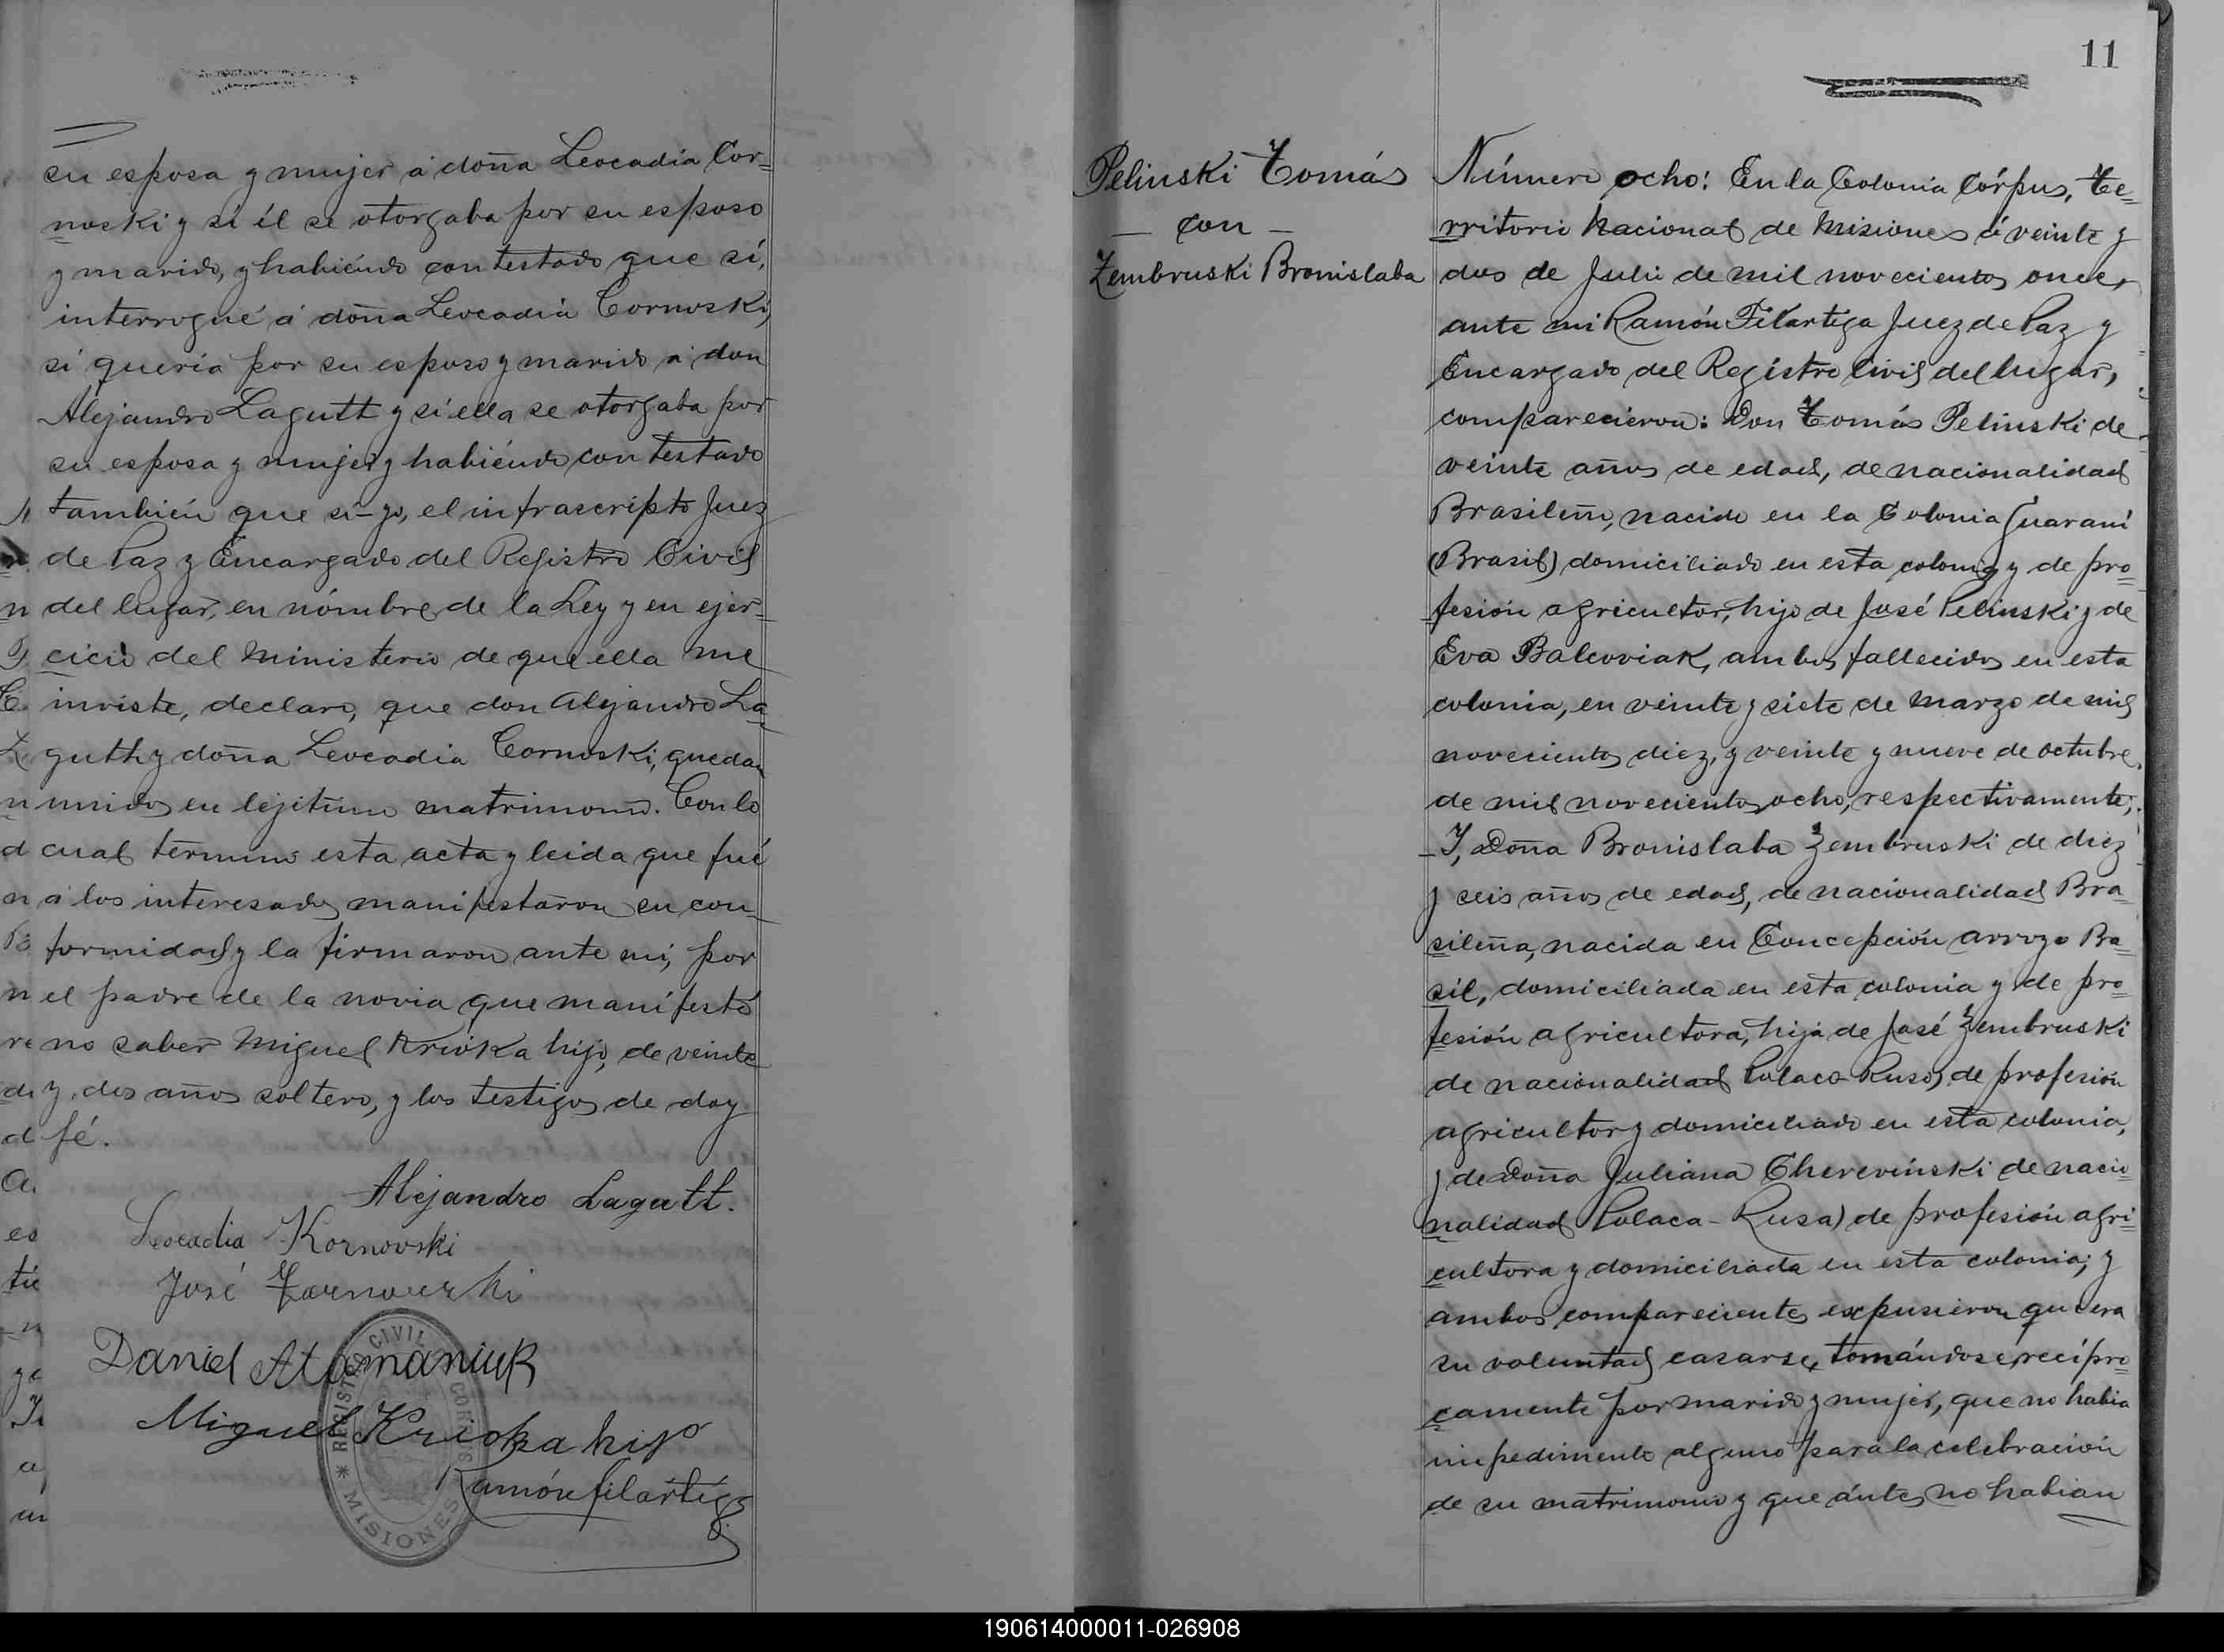 su esposa y mujer á doña Leocadia Cor-
noski y si él se otorgaba por su esposo
y marido, y habiéndo contestado que sí,
interrogué á doña Leocadia Cornoski,
si quería por su esposo y marido a don
Alejandro Lagutt y si ella se otorgaba por
su esposa y mujer y habiéndo contestado
también que sí- yo, el infrascripto Juez
de Paz y Encargado del Registro Civil
del lugar, en nómbre de la Ley y en ejer-
cicio del Ministerio de que ella me
inviste, declaro, que don Alejandro La-
gutt y doña Leocadia Cornoski, quedan
unidos en lejitimo matrimonio. Con lo
cual termino esta acta y leida que fué
á los interesados manifestáron su con-
formidad y la firmaron ante mi, por
el padre de la novia que manifestó
no saber Miguel Krioka hijo, de veinte
y dos años soltero, y los testigos de doy
fé.
Alejandro Lagutt.
Leocadia Kornovski
José
Daniel Atamaniuk
Miguel Krioka hijo
Ramón Filártiga
REGISTRO CIVIL CORPUS
* MISIONES
11
Pelinski Tomás
— con —
Zembruski Bronislaba
Número ocho: En la Colonia Córpus, Te-
rritorio Nacional de Misiones á veinte y
dos de Julio de mil novecientos once,
ante mi Ramón Filartiga Juez de Paz y
Encargado del Registro Civil del lugar,
comparecieron: Don Tomás Pelinski de
veinte años de edad, de nacionalidad
Brasileño, nacido en la Colonia Guaraní
(Brasil) domiciliado en esta colonia y de pro-
fesión agricultor, hijo de José Pelinski y de
Eva Balcoviak, ambos fallecidos en esta
colonia, en veinte y siete de Marzo de mil
novecientos diez, y veinte y nueve de octubre
de mil novecientos ocho, respectivamente;
- Y, Doña Bronislaba Zembruski de diez
y seis años de edad, de nacionalidad Bra-
sileña, nacida en Concepción arroyo Bra-
sil, domiciliada en esta colonia y de pro-
fesión agricultora, hija de José Zembruski
de nacionalidad Polaco-Ruso, de profesión
agricultor y domiciliado en esta colonia,
y de Doña Juliana Cherevinski de nacio-
nalidad Polaca-Rusa) de profesión agri-
cultora y domiciliada en esta colonia; y
ambos comparecientes expusieron que era
su voluntad casarse, tomándose, recípro-
camente por marido y mujer, que no habia
impedimento alguno para la celebración
de su matrimonio y que ántes no habian
190614000011-026908